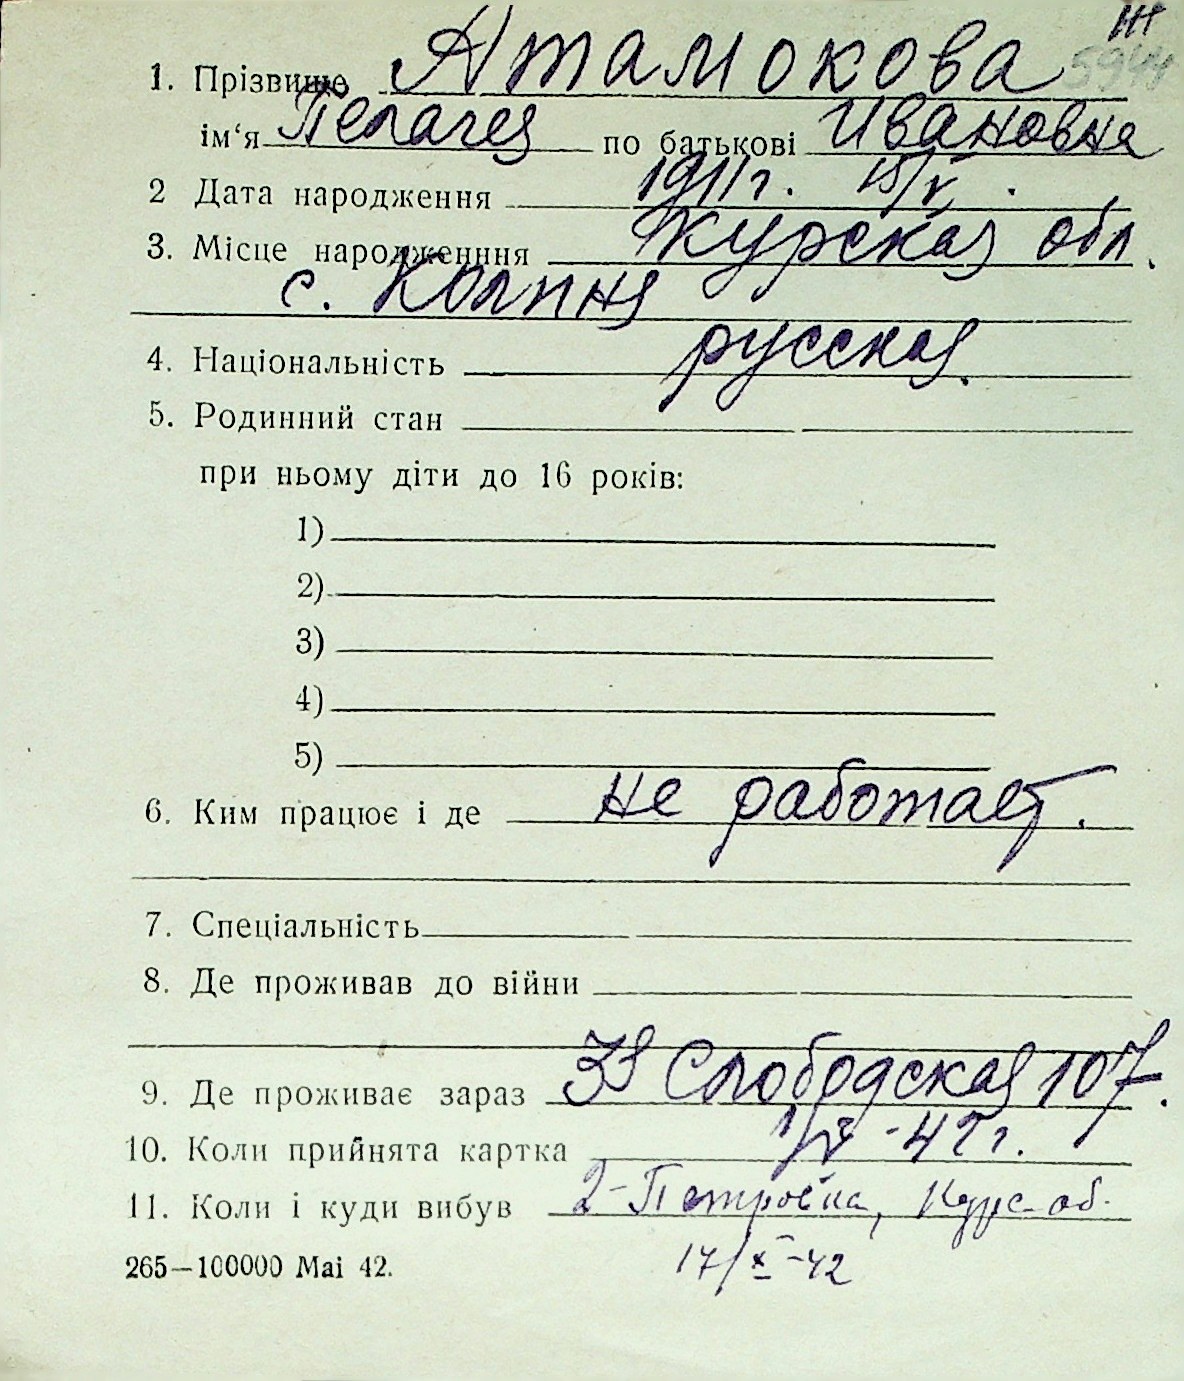 1. Прізвище Атамокова
ім‘я Пелагея по батькові Ивановна
2 Дата народження 1911 г. 15/V .
3. Місце народженння Курская обл.
с. Колпня
4. Національність русская.
5. Родинний стан
при ньому діти до 16 років:
1)
2)
3)
4)
5)
6. Ким працює і де не работает.
7. Спеціальність
8. Де проживав до війни
9. Де проживає зараз Слободская 107.
10. Коли прийнята картка -42 г.
11. Коли і куди вибув 2-Петровка, Курс. об.
17/X-42
265—100000 Mai 42.